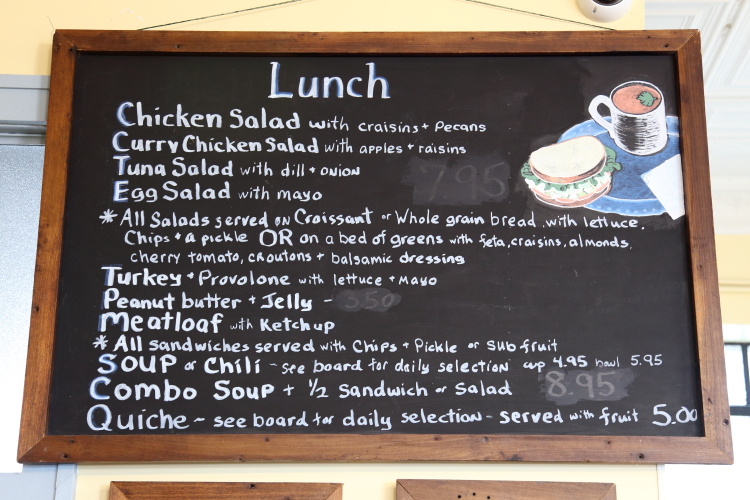 Lunch
Chicken Salad with craisins + Pecans
Curry Chicken Salad with apples + raisins
Tuna Salad with dill + onion
7.95
Egg Salad with mayo
* All Salads served on Croissant or Whole grain bread with lettuce,
Chips + a pickle OR on a bed of greens with feta, craisins, almonds,
cherry tomato, croutons + balsamic dressing
Turkey + Provolone with lettuce + Mayo
Peanut butter + Jelly - 3.50
Meatloaf with Ketchup
* All sandwiches served with Chips + Pickle or sub fruit
Soup or Chili - see board for daily selection cup 4.95 bowl 5.95
Combo Soup + 1/2 Sandwich or Salad 8.95
Quiche - see board for daily selection - served with fruit 5.00